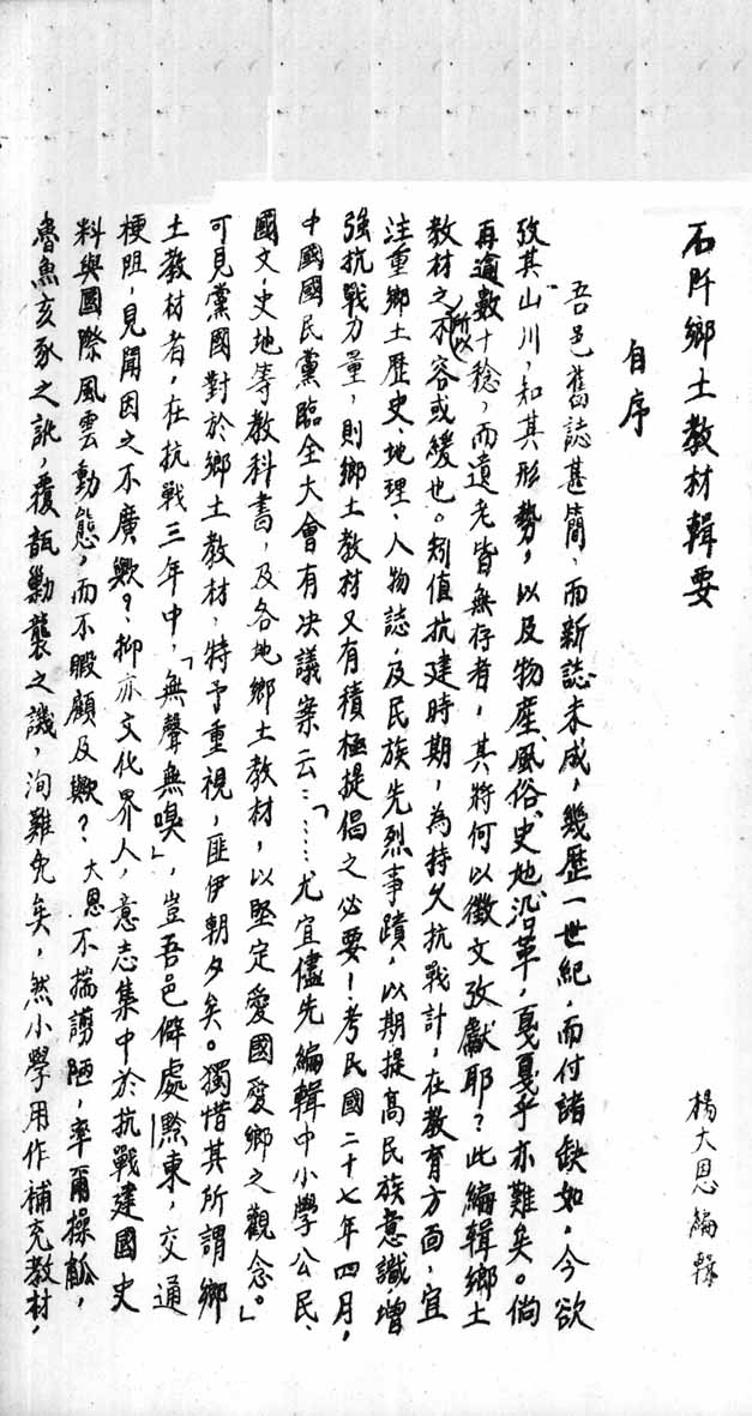 石阡鄉土教材輯要
楊大恩編輯
自序
吾邑舊誌甚簡，而新誌未成，幾歷一世紀，而付諸缺如，今欲
攷其山川，知其形勢，以及物產、風俗、史地沿革，戛戛乎亦難矣。倘
再逾數十稔，而遺老皆無存者，其將何以徵文攷獻耶？此編輯鄉土
教材之所以不容或緩也。矧值抗建時期，為持久抗戰計，在教育方面，宜
注重鄉土歷史、地理、人物誌，及民族先烈事蹟，以期提高民族意識，增
強抗戰力量，則鄉土教材又有積極提倡之必要！考民國二十七年四月，
中國國民黨臨全大會有決議案云：「……尤宜儘先編輯中小學公民、
國文、史地等教科書，及各地鄉土教材，以堅定愛國愛鄉之觀念。」
可見黨國對於鄉土教材，特予重視，匪伊朝夕矣。獨惜其所謂鄉
土教材者，在抗戰三年中，「無聲無嗅」，豈吾邑僻處黔東，交通
梗阻，見聞因之不廣歟？抑亦文化界人，意志集中於抗戰建國史
料與國際風雲動態，而不暇顧及歟？大恩不揣譾陋，率爾操觚，
魯魚亥豕之訛，覆瓿勦襲之譏，洵難免矣，然小學用作補充教材，